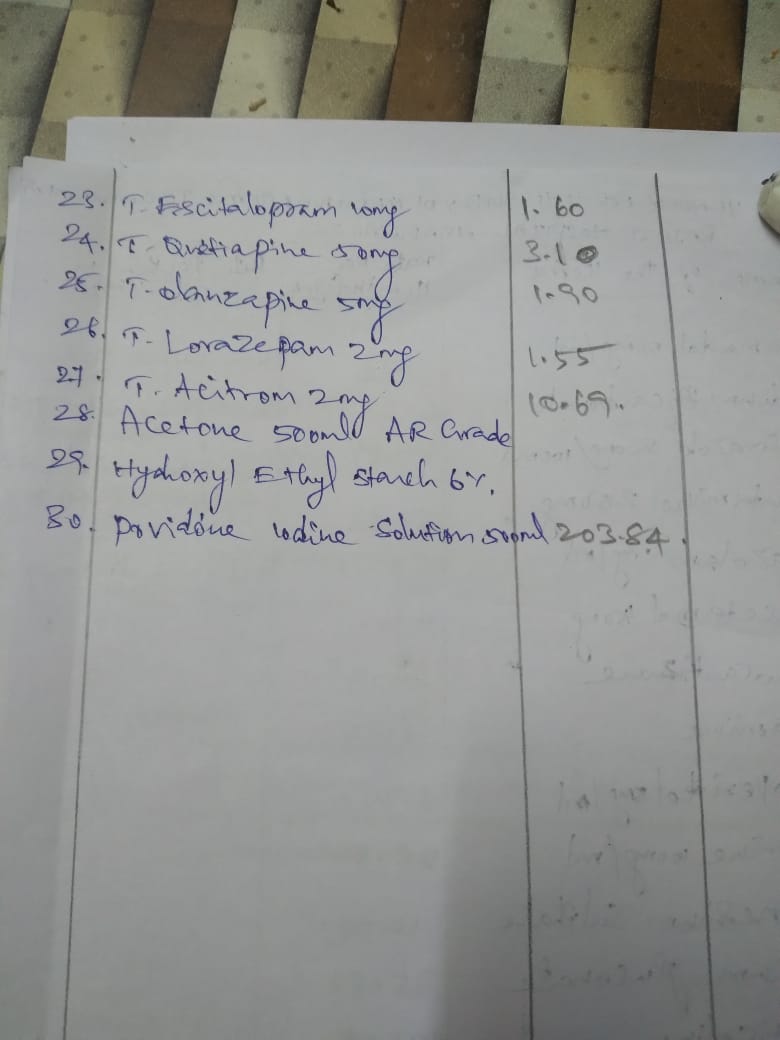 23. T. Escitalopram 10mg 1.60
24. T. Qutiapine 50mg 3.10
25. T. olanzapine 5mg 1.90
26. T. Lorazepam 2mg 1.55
27. T. Acitrom 2mg 10.69.
28. Acetone 500ml AR Grade
29. Hydroxyl Ethyl Starch 6%.
30. Povidone iodine Solution 500ml 203.84.